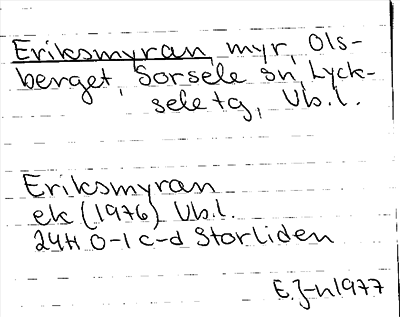 Eriksmyran, myr, Ols-
berget, Sorsele sn, Lyck-
sele tg, Vb.l.
Eriksmyran
ek (1976) Vb.l.
24H 0-1 c-d Storliden
E.J-n 1977